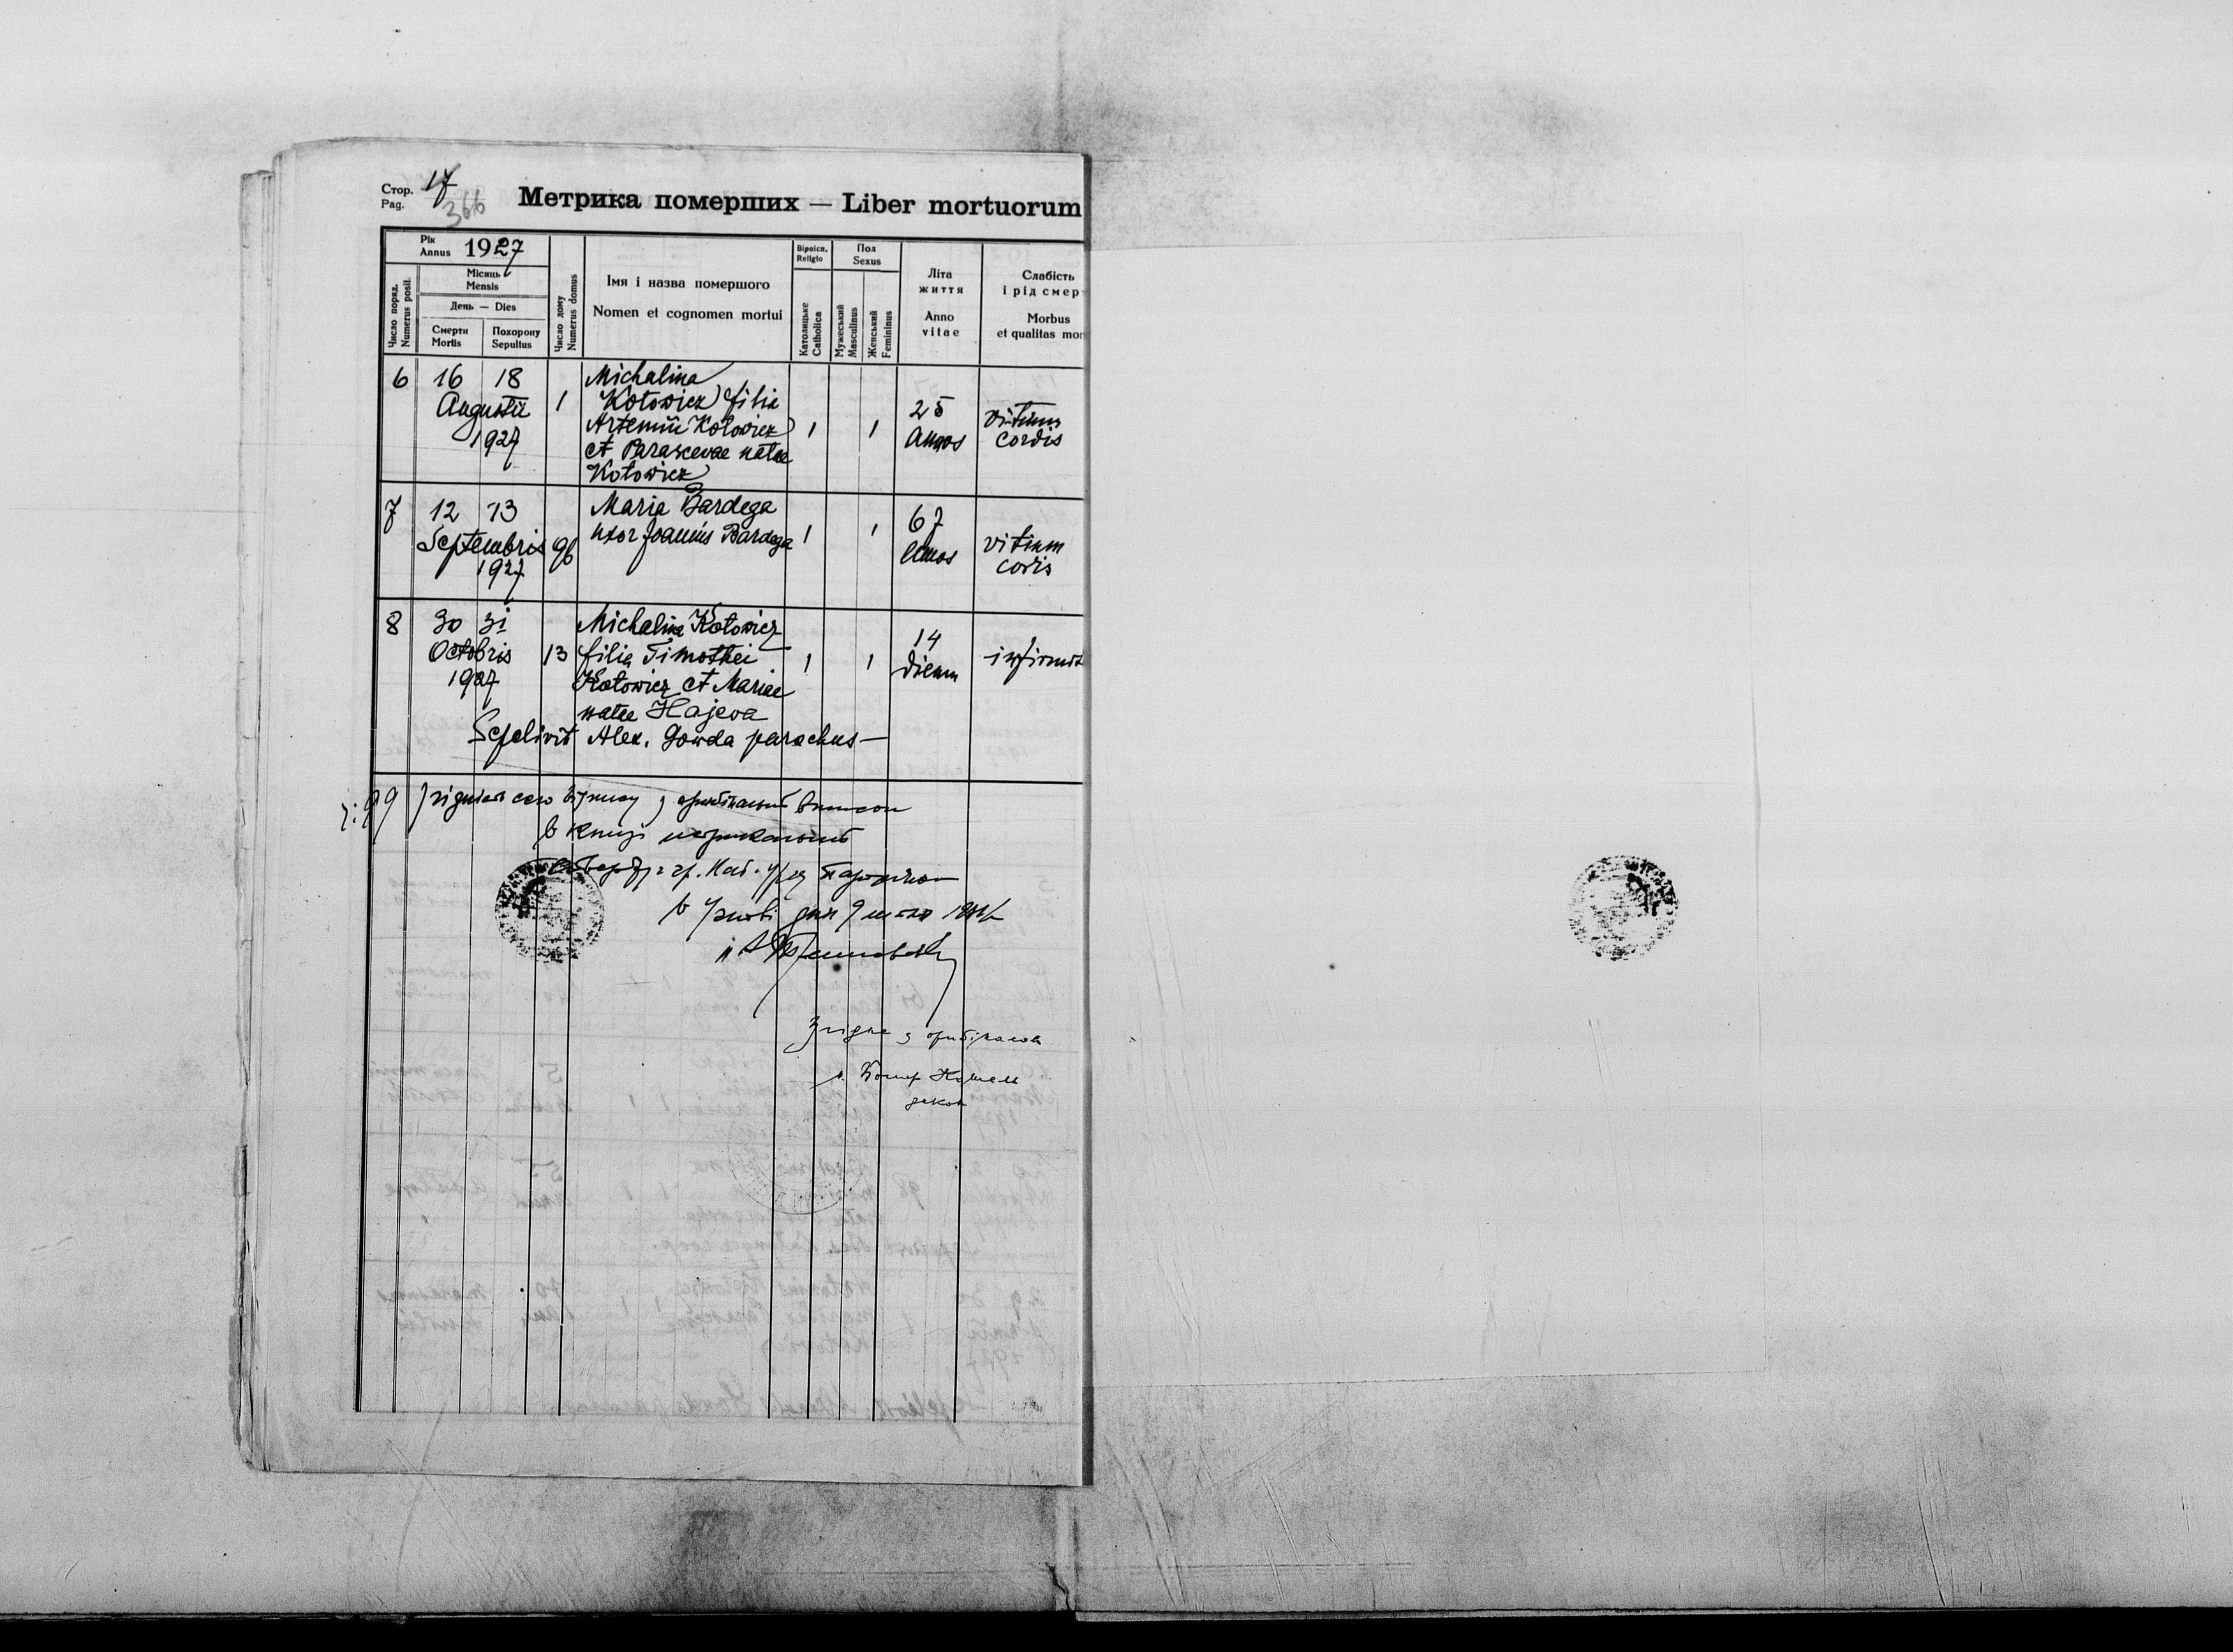 Стор. 17
Pag.
366
Метрика померших — Liber mortuorum
Рік
Annus 1927
Місяць
Mensis
День — Dies
Смерти
Mortis
Похорону
Sepultus
Число поряд.
Numerus posit.
Число дому
Numerus domus
Імя і назва помершого
Nomen et cognomen mortui
Віроісп.
Religio
Католицьке
Catholica
Пол
Sexus
Мужеський
Masculinus
Женський
Femininus
Літа
життя
Anno
vitae
Слабість
і рід смер
Morbus
et qualitas mor
6 16 18
Augusti
1927
1
Michalina
Kotowicz filia
Artemii Kotowicz
et Parascevae natae
Kotowicz
1 1
25
annos
vitium
cordis
7 12 13
Septembris
1927
96
Maria Bardega
uxor Joannis Bardega
1 1
67
annos
vitium
cordis
8 30 31
Octobris
1927
13
Michalina Kotowicz
filia Timothei
Kotowicz et Mariae
natae Hajewa
1 1
14
dierum
infirmit
Sepelivit Alex. Gowda parochus —
в книзі метрикальній
дня 9
Згідне з оригіналом
декан